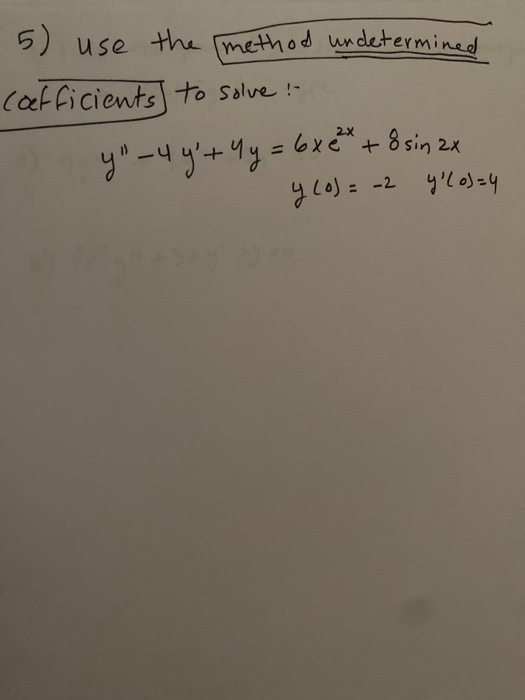 5) use the method undetermined
coefficients to solve :-
y" - 4y' + 4y = 6xe^2x + 8 sin 2x
y(0) = -2 y'(0)=4